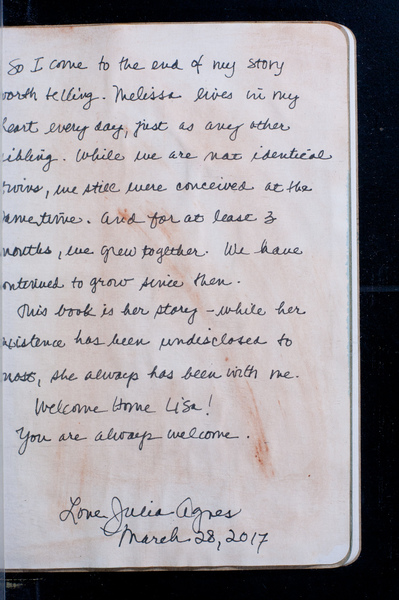 So I come to the end of my story
worth telling. Melissa lives in my
heart every day, just as any other
sibling. While we are not identical
twins, we still were conceived at the
same time. And for at least 3
months, we grew together. We have
continued to grow since then.
This book is her story - while her
existence has been undisclosed to
most, she always has been with me.
Welcome Home Lisa!
You are always welcome.
Love, Julia Agnes
March 28, 2017